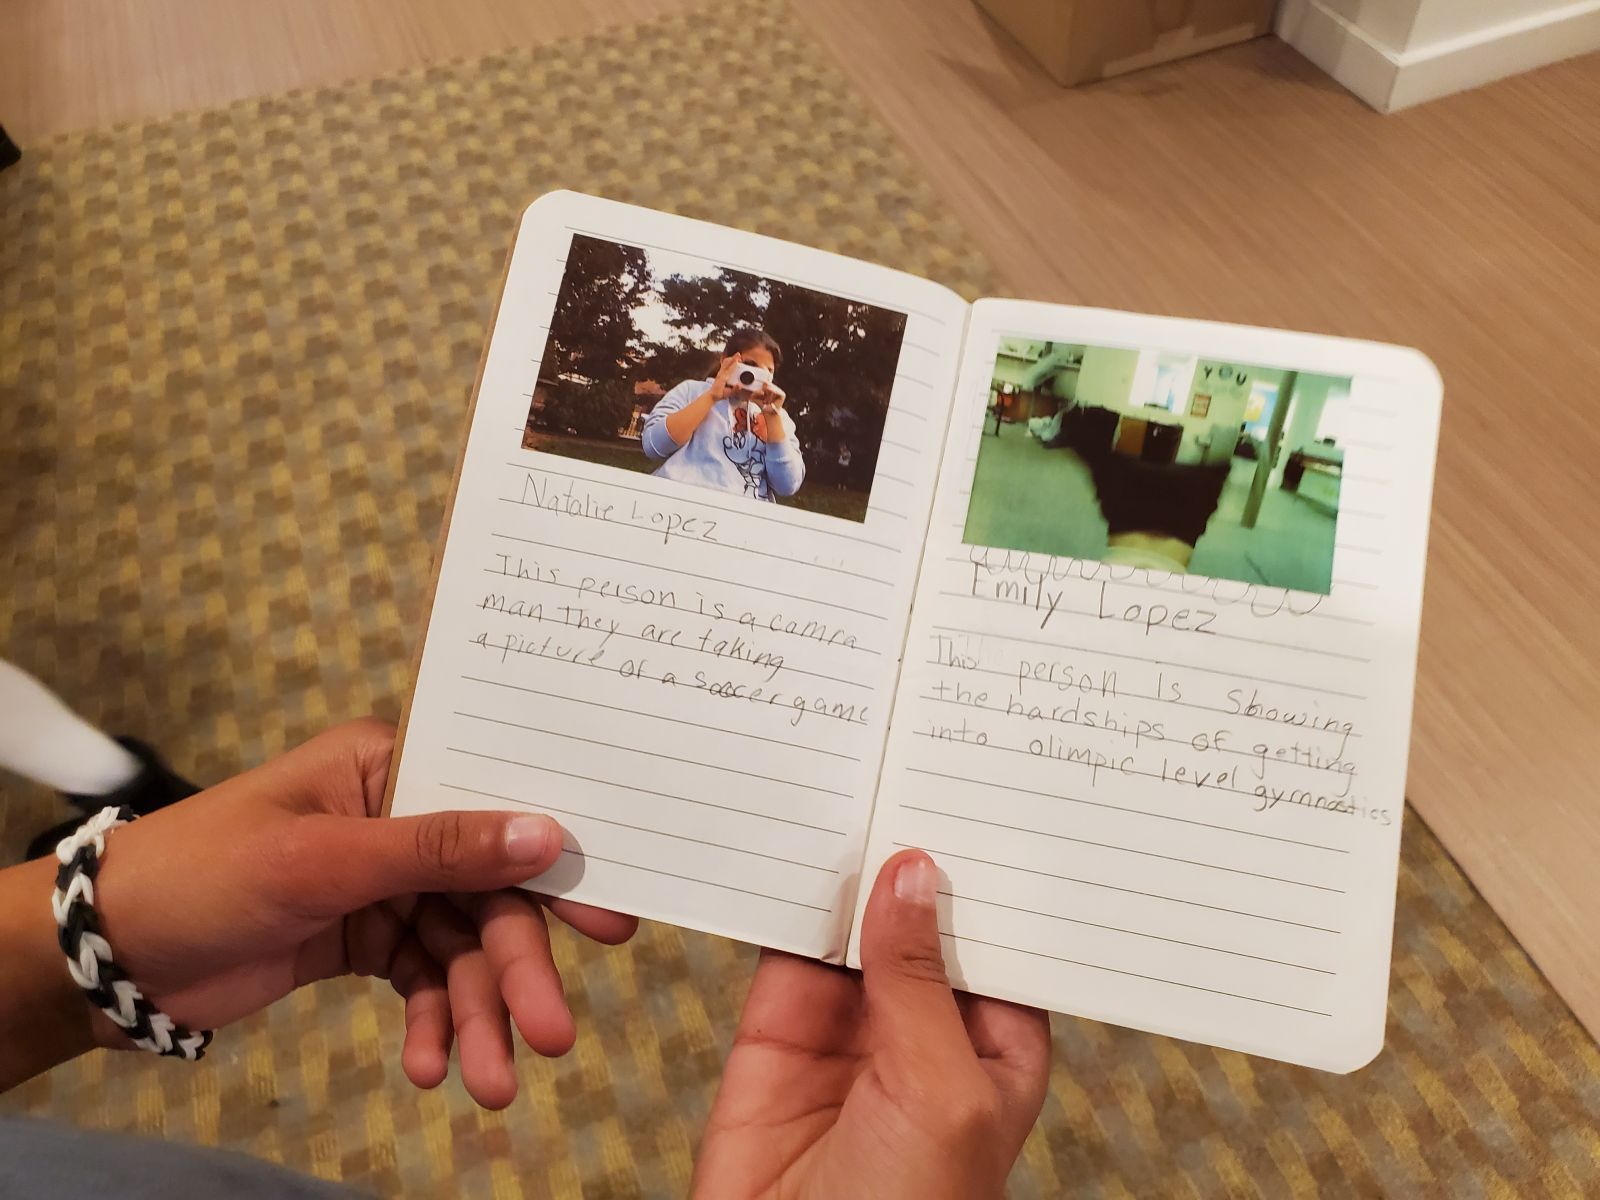 Natalie Lopez
This person is a camra
man They are taking
a picture of a soccer game
YOU
Emily Lopez
This person is showing
the hardships of getting
into olimpic level gymnastics